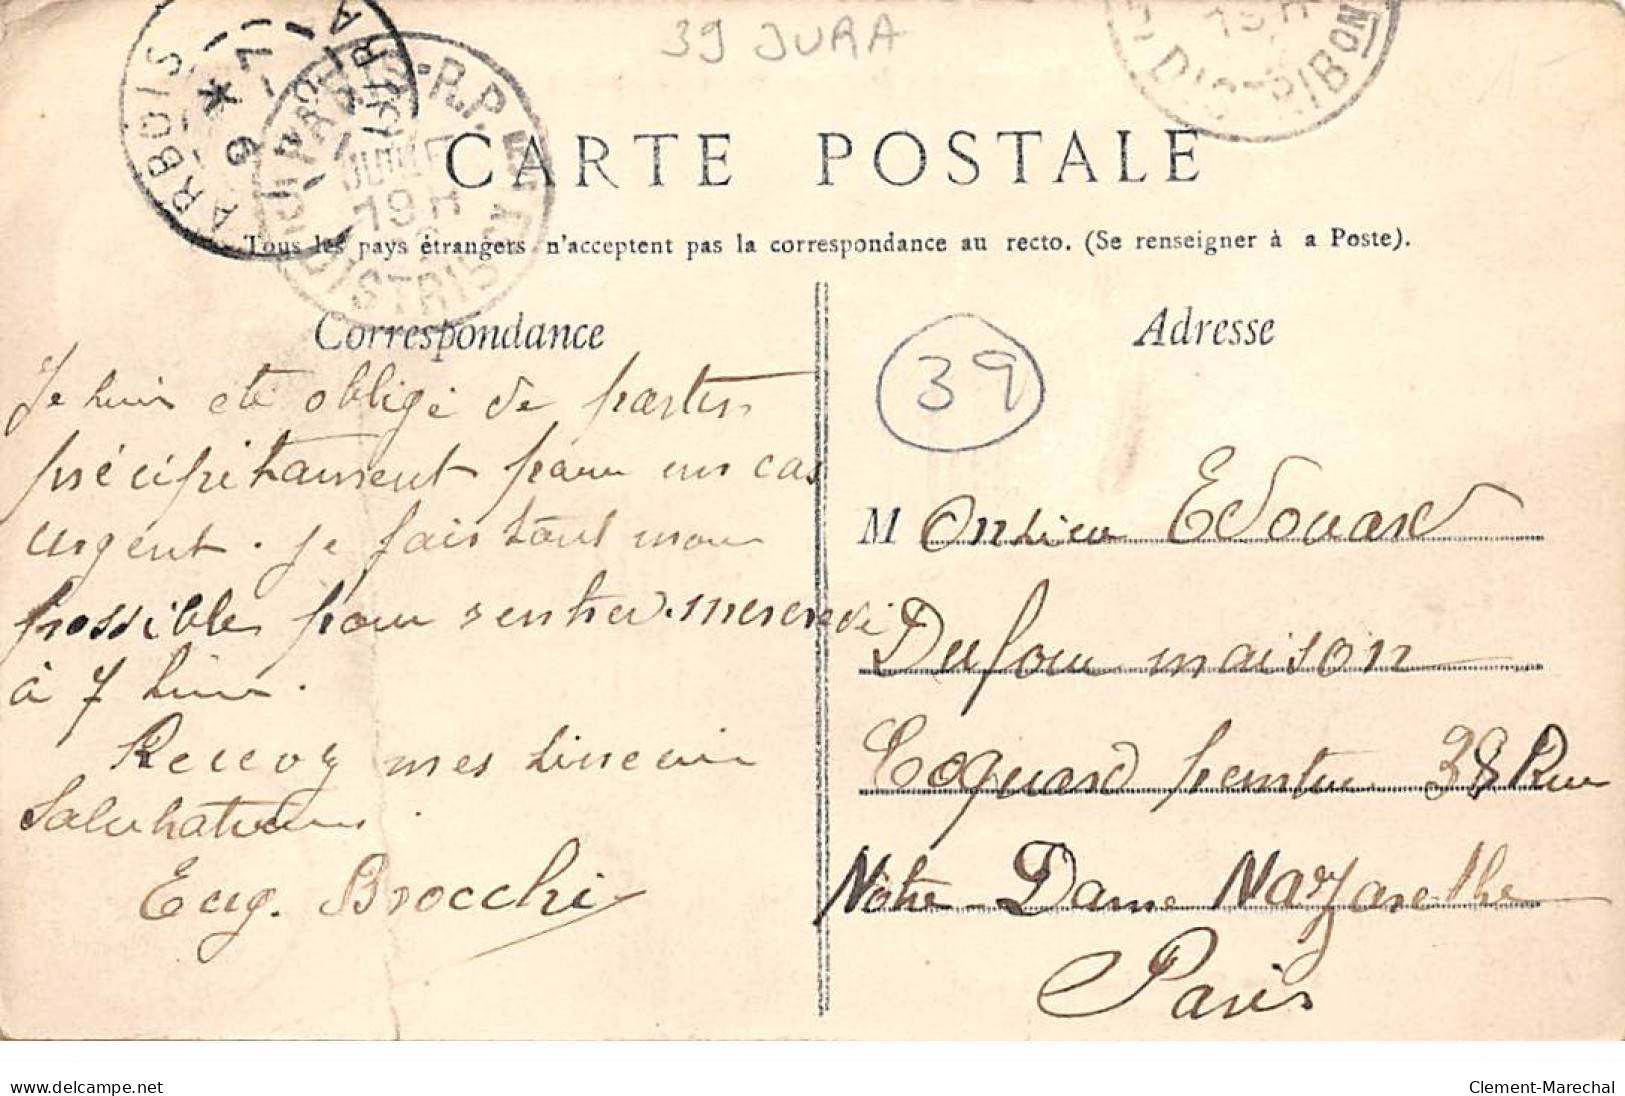 39 JURA
ARBOIS
DISTRIBON
CARTE POSTALE
Tous les pays étrangers n'acceptent pas la correspondance au recto. (Se renseigner à a Poste).
Correspondance
Je suis été obligé de partir
précipitament pour un cas
urgent. Je fais tout mon
possible pour rentrer mercredi
à 7 heure.
Recevez mes sincerir
Salutations.
Eug. Brocchi
Adresse
39
Monsieur Edouard
Dufour maison
Coquard peintre 38 Rue
Notre-Dame Nazarethe
Paris
delcampe.net
Clement-Marechal